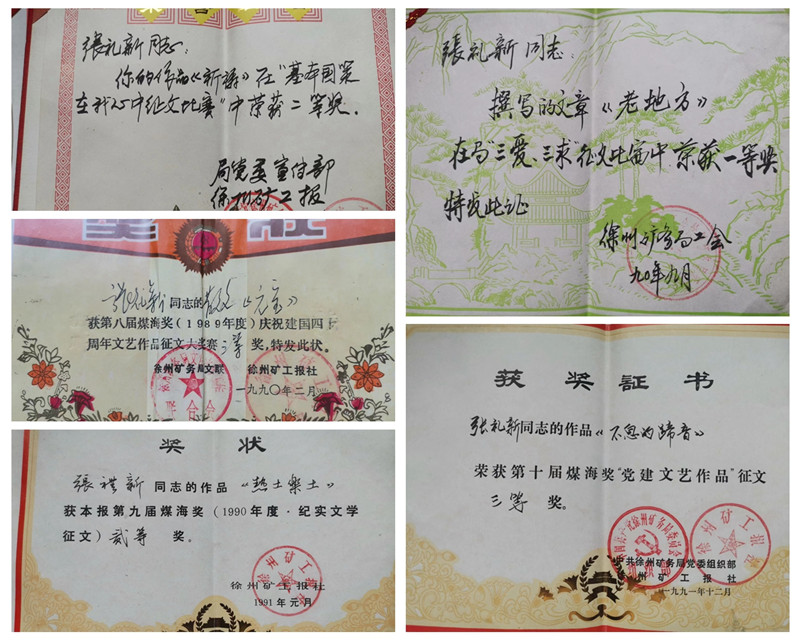 張礼新同志：
你的作品《新譜》在"基本国策
在我心中征文比赛"中荣获二等奖.
局党委宣传部
徐州矿工报
奖状
張礼新同志的散文《元宝》
获第八届煤海奖（1989年度）庆祝建国四十
周年文艺作品征文大奖赛三等奖，特发此状。
徐州矿务局文联 徐州矿工报社
一九九〇年二月
奖状
張礼新同志的作品《热土乐土》
获本报第九届煤海奖（1990年度·纪实文学
征文）贰等奖。
徐州矿工报社
1991年元月
張礼新同志：
撰写的文章《老地方》
在局三爱、三求征文比赛中荣获一等奖
特发此证
徐州矿务局工会
九〇年九月
获奖証书
张礼新同志的作品《不息的蹄音》
荣获第十届煤海奖"党建文艺作品"征文
三等奖。
中共徐州矿务局党委组织部
徐州矿工报社
一九九一年十二月